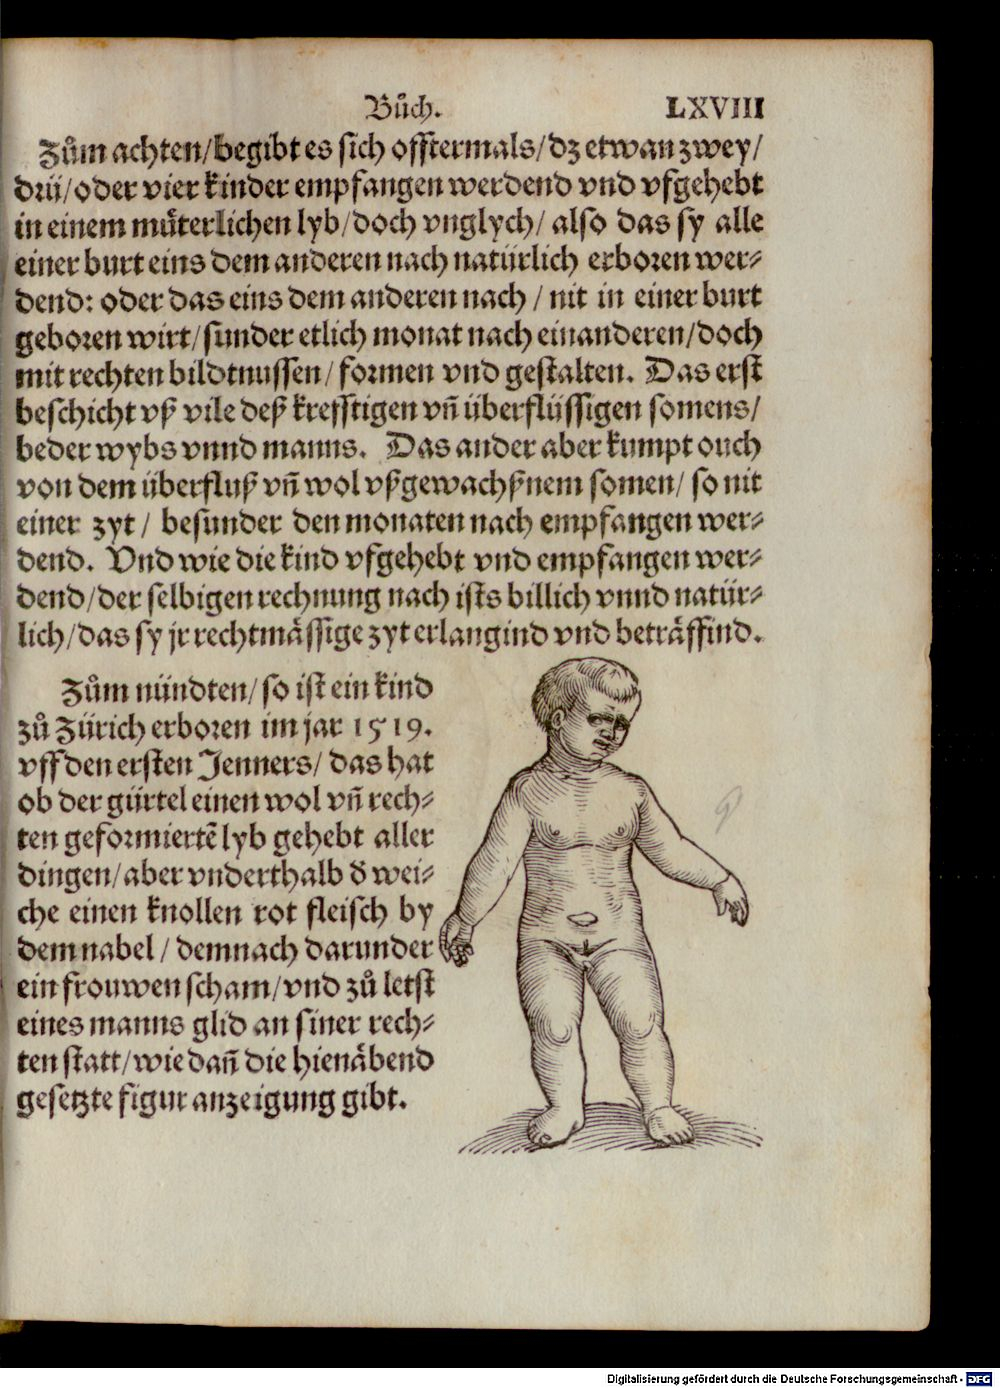 Bůch. LXVIII
Zům achten/begibt es sich offtermals/dz etwan zwey/
drü/oder vier kinder empfangen werdend vnd vfgehebt
in einem můterlichen lyb/doch vnglych/ also das sy alle
einer burt eins dem anderen nach natürlich erboren wer⸗
dend: oder das eins dem anderen nach / nit in einer burt
geboren wirt/sunder etlich monat nach einanderen/doch
mit rechten bildtnussen/ formen vnd gestalten. Das erst
beschicht vß vile deß krefftigen vn̄ überflüssigen somens/
beder wybs vnnd manns. Das ander aber kumpt ouch
von dem überfluß vn̄ wol vßgewachßnem somen/ so nit
einer zyt / besunder den monaten nach empfangen wer⸗
dend. Vnd wie die kind vfgehebt vnd empfangen wer⸗
dend/der selbigen rechnung nach ists billich vnnd natür⸗
lich/das sy jr rechtmässige zyt erlangind vnd beträffind.
Zům nündten/so ist ein kind
zů Zürich erboren im jar 1519.
vff den ersten Jenners/ das hat
ob der gürtel einen wol vn̄ rech⸗
ten geformiertē lyb gehebt aller
dingen/aber vnderthalb d̕ wei⸗
che einen knollen rot fleisch by
dem nabel / demnach darunder
ein frouwen scham/vnd zů letst
eines manns glid an siner rech⸗
ten statt/wie dan̄ die hienäbend
gesetzte figur anzeigung gibt.
Digitalisierung gefördert durch die Deutsche Forschungsgemeinschaft - DFG